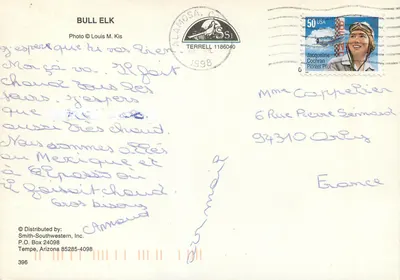 BULL ELK
Photo © Louis M. Kis
j'espère que tu vas bien
Moi ça va. Il fait
chaud tous les
jours. j'espère
que
aussi très chaud.
Nous sommes allés
au Mexique et
à El paso où
il faisait chaud
Gros bisous
Arnaud
© Distributed by:
Smith-Southwestern, Inc.
P.O. Box 24098
Tempe, Arizona 85285-4098
396
TERRELL 1186040
ALAMOSA,
1998
50 USA
Mme Cappelier
6 Rue Pierre Sémard
94310 Orly
France
air mail